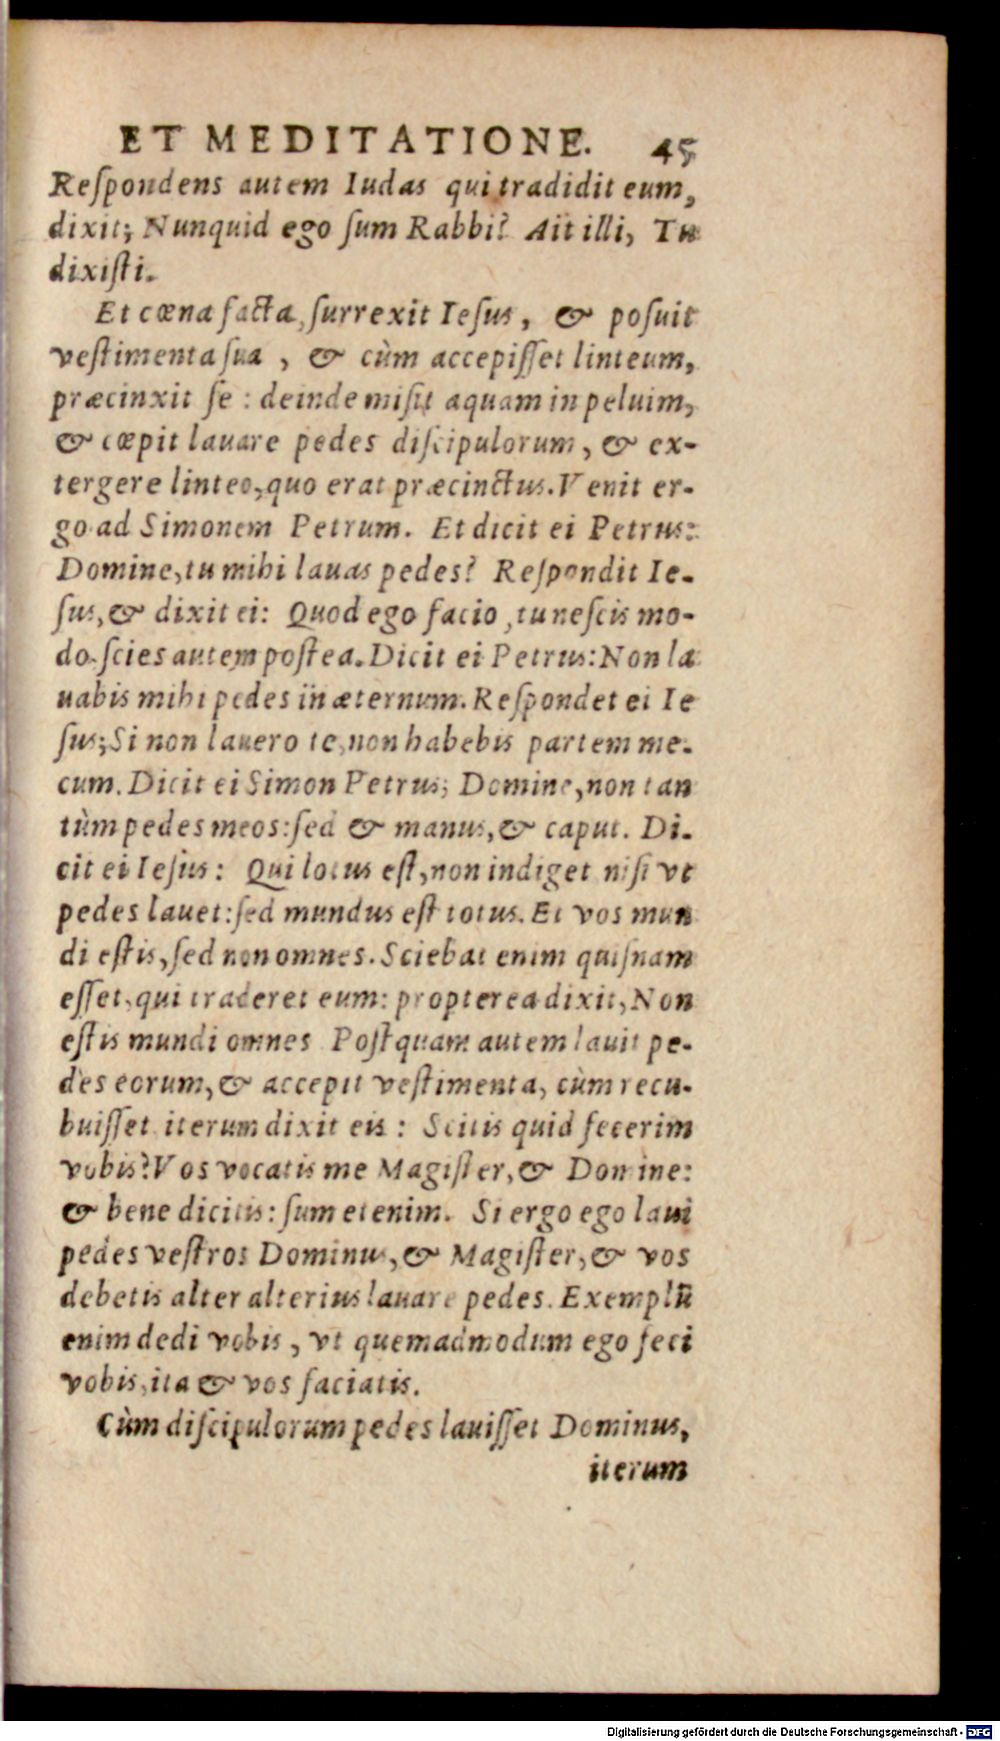 ET MEDITATIONE. 45
Reſpondens autem Iudas qui tradidit eum,
dixit; Nunquid ego ſum Rabbi? Ait illi, Tu
dixiſti.
Et cœna facta, ſurrexit Ieſus, & poſuit
veſtimenta ſua , & cùm accepiſſet linteum,
præcinxit ſe : deinde miſit aquam in peluim,
& cœpit lauare pedes diſcipulorum, & ex-
tergere linteo, quo erat præcinctus. Venit er-
go ad Simonem Petrum. Et dicit ei Petrus:
Domine, tu mihi lauas pedes? Reſpondit Ie-
ſus, & dixit ei: Quod ego facio, tu neſcis mo-
do. ſcies autem poſtea. Dicit ei Petrus: Non la
uabis mihi pedes in æternum. Reſpondet ei Ie
ſus; Si non lauero te, non habebis partem me-
cum. Dicit ei Simon Petrus; Domine, non tan
tùm pedes meos: ſed & manus, & caput. Di-
cit ei Ieſus: Qui lotus eſt, non indiget niſi vt
pedes lauet: ſed mundus eſt totus. Et vos mun
di eſtis, ſed non omnes. Sciebat enim quiſnam
eſſet, qui traderet eum: propterea dixit, Non
eſtis mundi omnes Poſtquam autem lauit pe-
des eorum, & accepit veſtimenta, cùm recu-
buiſſet iterum dixit eis : Scitis quid fecerim
vobis? Vos vocatis me Magiſter, & Domine:
& bene dicitis: ſum etenim. Si ergo ego laui
pedes veſtros Dominus, & Magiſter, & vos
debetis alter alterius lauare pedes. Exemplũ
enim dedi vobis, vt quemadmodum ego feci
vobis, ita & vos faciatis.
Cùm diſcipulorum pedes lauiſſet Dominus,
iterum
Digitalisierung gefördert durch die Deutsche Forschungsgemeinschaft - DFG